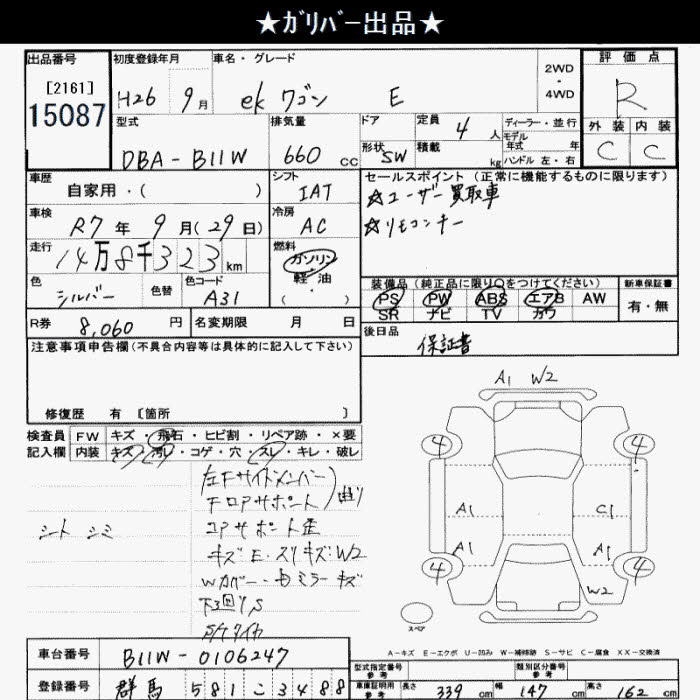 ★ｶﾞﾘﾊﾞｰ出品★
出品番号
[2161]
15087
初度登録年月
H26 9月
車名・グレード
ek ワゴン E
2WD
・
4WD
評価点
R
外装 内装
C C
型式
DBA-B11W
排気量
660 cc
ドア
形状 SW
定員 4 人
積載 kg
ディーラー・並行
モデル年式 年式
ハンドル 左・右
車歴
自家用・( )
シフト
IAT
セールスポイント (正常に機能するものに限ります)
☆ユーザー買取車
☆リモコンキー
車検
R7年 9月(29日)
冷房
AC
走行
14万8千323km
燃料
ガソリン
軽・油
( )
色
シルバー
色替
色コード
A31
装備品 (純正品に限り○をつけてください)
PS PW ABS エアB AW
SR ナビ TV カワ
新車保証書
有・無
R券 8,060 円
名変期限 月 日
後日品
保証書
注意事項申告欄 (不具合内容等は具体的に記入して下さい)
修復歴 有 [箇所 ]
検査員
記入欄
FW キズ・飛石・ヒビ割・リペア跡・×要
内装 キズ・汚レ・コゲ・穴・スレ・キレ・破レ
左Fサイドメンバー
Fロアサポート
曲リ
コアサポート歪
シート シミ
キズ・E・スリキズ・W2
Wカバー・ミラーキズ
下回リS
A1 W2
4 4
A1 C1
A1 A1
4 4
W2
スペア
A-キズ E-エクボ U-凹み W-補修跡 S-サビ C-腐食 XX-交換済
車台番号 B11W-0106247
登録番号 群馬 581 こ 3488
型式指定番号 参考
類別区分番号 参考
車庫証明用 参考
長さ 339 cm 幅 147 cm 高さ 162 cm